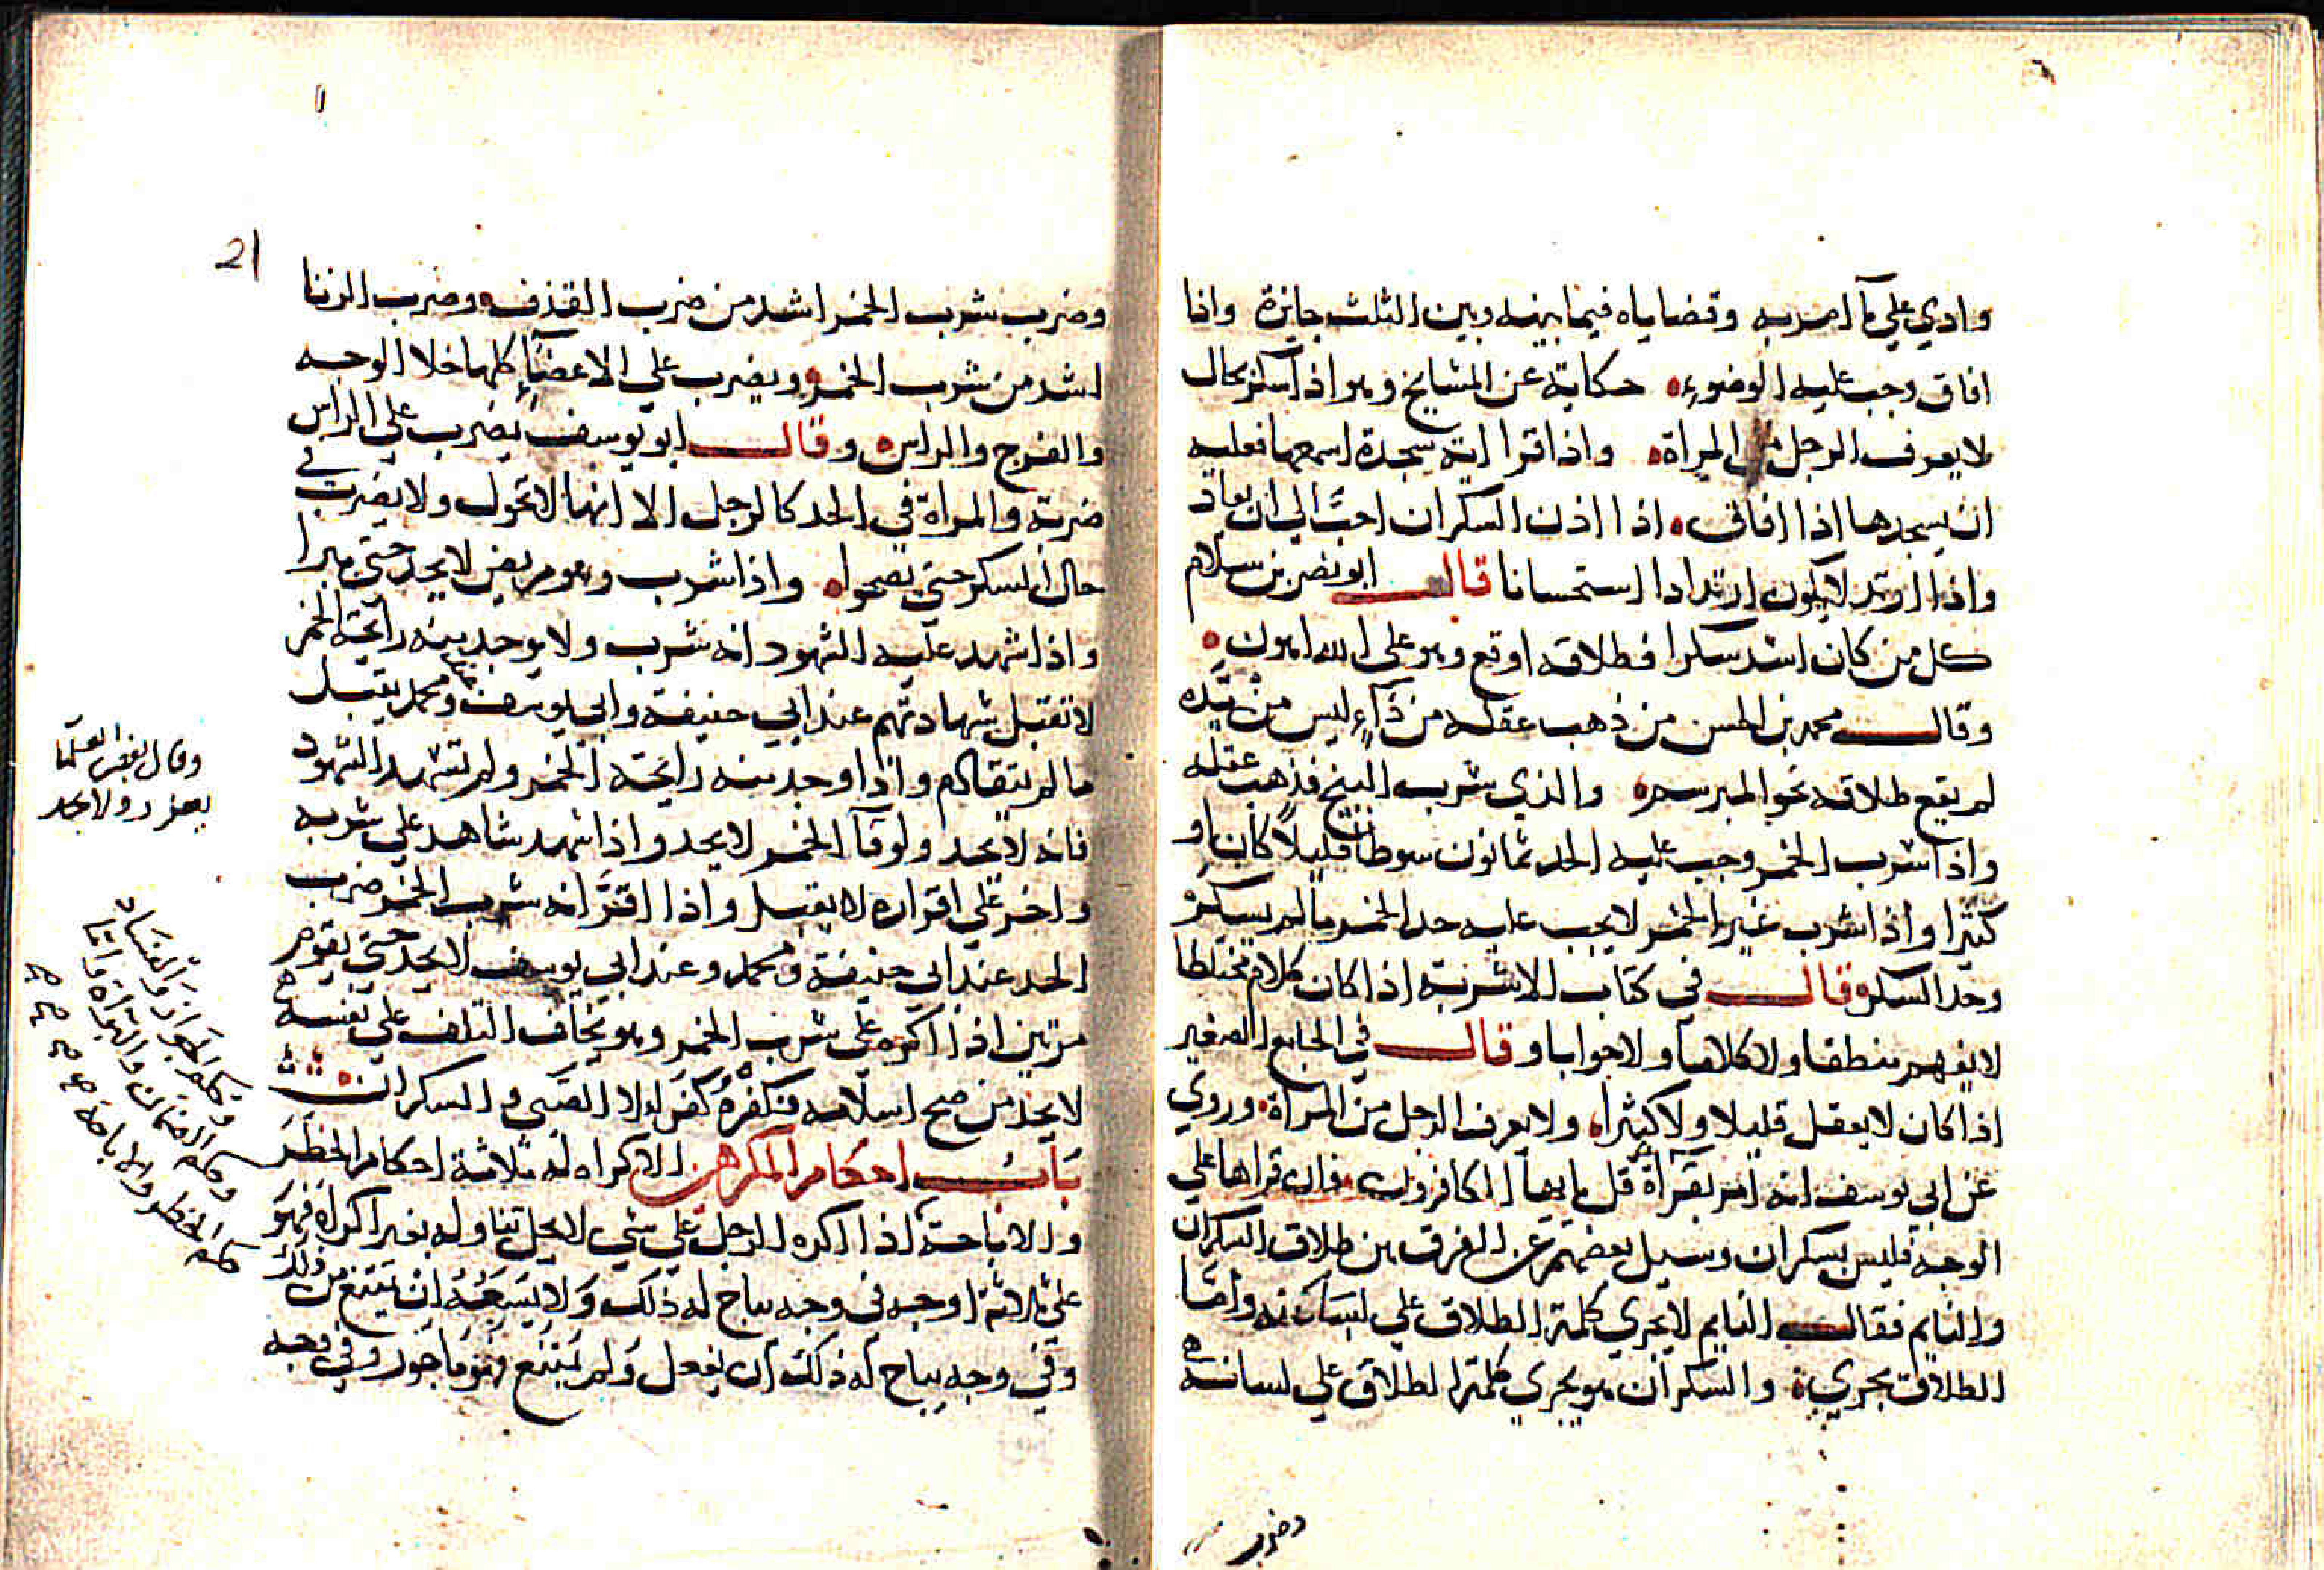 وادي علي ما امر به وقضاياه فيما بينه وبين الثلث جايزة واذا
افاق وجب عليه الوضوء حكاية عن المشايخ وهو اذا سكر بحال
لا يعرف الرجل من المراة واذا قرا اية سجدة اسمعها فعليه
ان يسجدها اذا افاق اذا اذن السكران احب الي ان يعاد
واذا ارتد لا يكون ارتدادا استحسانا قال ابو نصر بن سلام
كل من كان اشد سكرا فطلاقه اوقع وهو على الله اهون
وقال محمد بن الحسن من ذهب عقله من دآء ليس من
لم يقع طلاقه نحو المبرسم والذي شرب البنج فذهب عقله
واذا شرب الخمر وجب عليه الحد ثمانون سوطا قليلا كان او
كثيرا واذا شرب غير الخمر لا يجب عليه حد الخمر ما لم يسكر
وحد السكر وقال في كتاب الاشربة اذا كان كلام مختلطا
لا يفهم منطقا ولا كلاما ولا جوابا وقال في الجامع الصغير
اذا كان لا يعقل قليلا ولا كثيرا ولا يعرف الرجل من المراة وروي
عن ابي يوسف انه امر بقرآة قل يا ايها الكافرون فان قراها علي
الوجه فليس بسكران وسيل بعضهم عن الفرق بين طلاق السكران
والنايم فقال النايم لا يجري كلمة الطلاق علي لسانه وامتا
الطلاق يجري والسكران هو يجري كلمة الطلاق علي لسانه
وضرب
21
وضرب شرب الخمر اشد من ضرب القذف وضرب الزنا
اشد من شرب الخمر ويضرب علي الاعضآء كلها خلا الوجه
والفرج والراس وقال ابو يوسف يضرب علي الراس
ضربة والمراة في الحد كالرجل الا انها لا تحول ولا يضرب في
حال السكر حتي يصحوا واذا شرب وهو مريض لا يحد حتي يبرا
واذا شهد عليه الشهود انه شرب ولا يوجد منه رايحة الخمر
لا تقبل شهادتهم عند ابي حنيفة وابي يوسف ومحمد يقبل
ما لم يتقادم واذا وجد منه رايحة الخمر ولم تشهد الشهود
فانه لا يحد ولو قآ الخمر لا يحد واذا شهد شاهد علي شربه
واخر علي اقراره لا يقبل واذا اقر انه شرب الخمر ضرب
الحد عند ابي حنيفة ومحمد وعند ابي يوسف لا يحد حتي يقوم
مرتين اذا اكره علي شرب الخمر وهو يخاف التلف علي نفسه
لا يحد من صح اسلامه فكفره كفر الا الصبي والسكران
باب احكام المكرهين الاكراه له ثلاثة احكام الحظر
والاباحة اذا اكره الرجل علي شي لا يحل تناوله بغير اكراه فهو
علي ثلاثة اوجه في وجه يباح له ذلك ولا يسعه ان يمتنع من ذلك
وفي وجه يباح له ذلك ان يفعل ولم يمتنع فهو ماجور وفي وجه
وقال بعض العلما
يعزر ولا يحد
وحكم الجواز والفساد
وحكم الضمان والبراة واما
حكم الحظر والاباحة